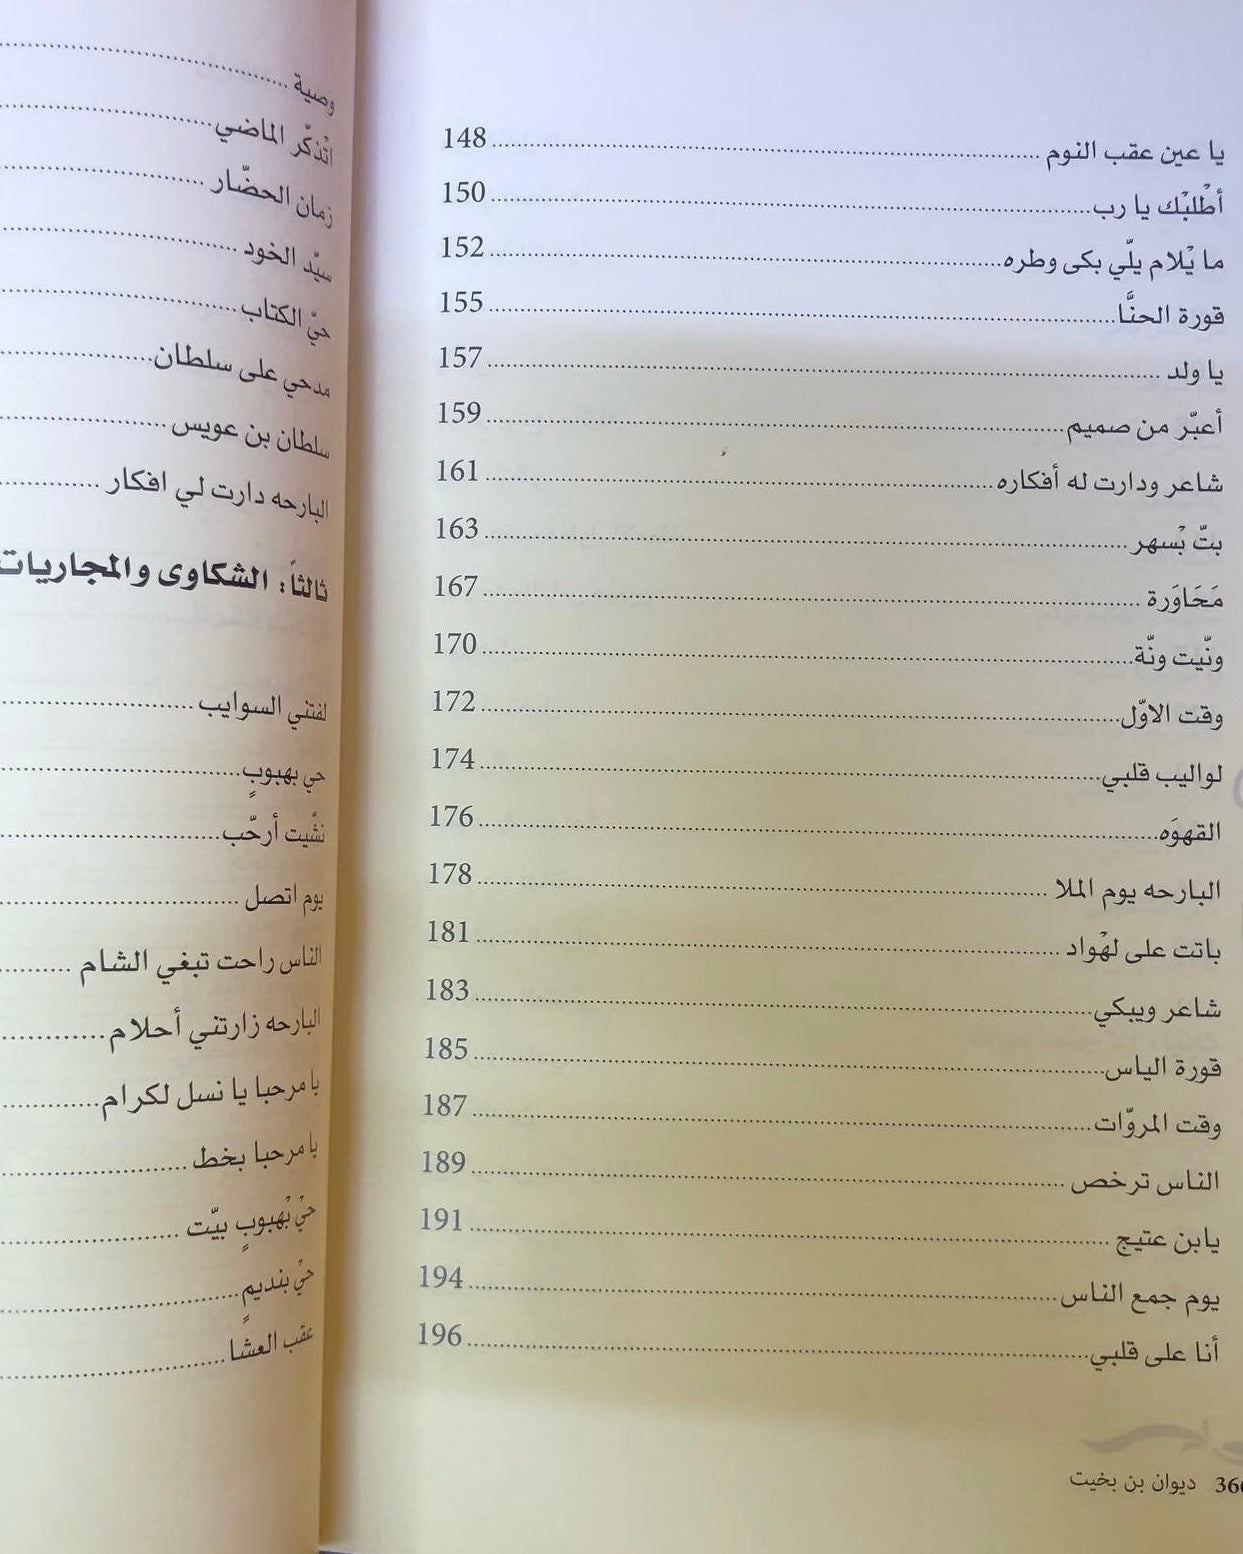 يا عين عقب النوم ........ 148
أطْلبْك يا رب ........ 150
ما يْلام يلّي بكى وطره ........ 152
قورة الحنَّا ........ 155
يا ولد ........ 157
أعبّر من صميم ........ 159
شاعر ودارت له أفكاره ........ 161
بتّ بْسهر ........ 163
مَحَاوَرة ........ 167
ونّيت ونّة ........ 170
وقت الاوّل ........ 172
لواليب قلبي ........ 174
القهوَه ........ 176
البارحه يوم الملا ........ 178
باتت على لهْواد ........ 181
شاعر ويبكي ........ 183
قورة الياس ........ 185
وقت المروّات ........ 187
الناس ترخص ........ 189
يابن عتيج ........ 191
يوم جمع الناس ........ 194
أنا على قلبي ........ 196
ديوان بن بخيت
وصية ........
اتْذكّر الماضي ........
زمان الحضّار ........
سيّد الخود ........
حيّ الكتاب ........
مدحي على سلطان ........
سلطان بن عويس ........
البارحه دارت لي افكار ........
ثالثاً: الشكاوى والمجاريات
لفتني السوايب ........
حي بهبوبٍ ........
نشّيت أرحّب ........
يوم اتصل ........
الناس راحت تبغي الشام ........
البارحه زارتني أحلام ........
يا مرحبا يا نسل لكرام ........
يا مرحبا بخط ........
حيّ بْهبوبٍ بيّت ........
حيّ بنديمٍ ........
عقب العشا ........